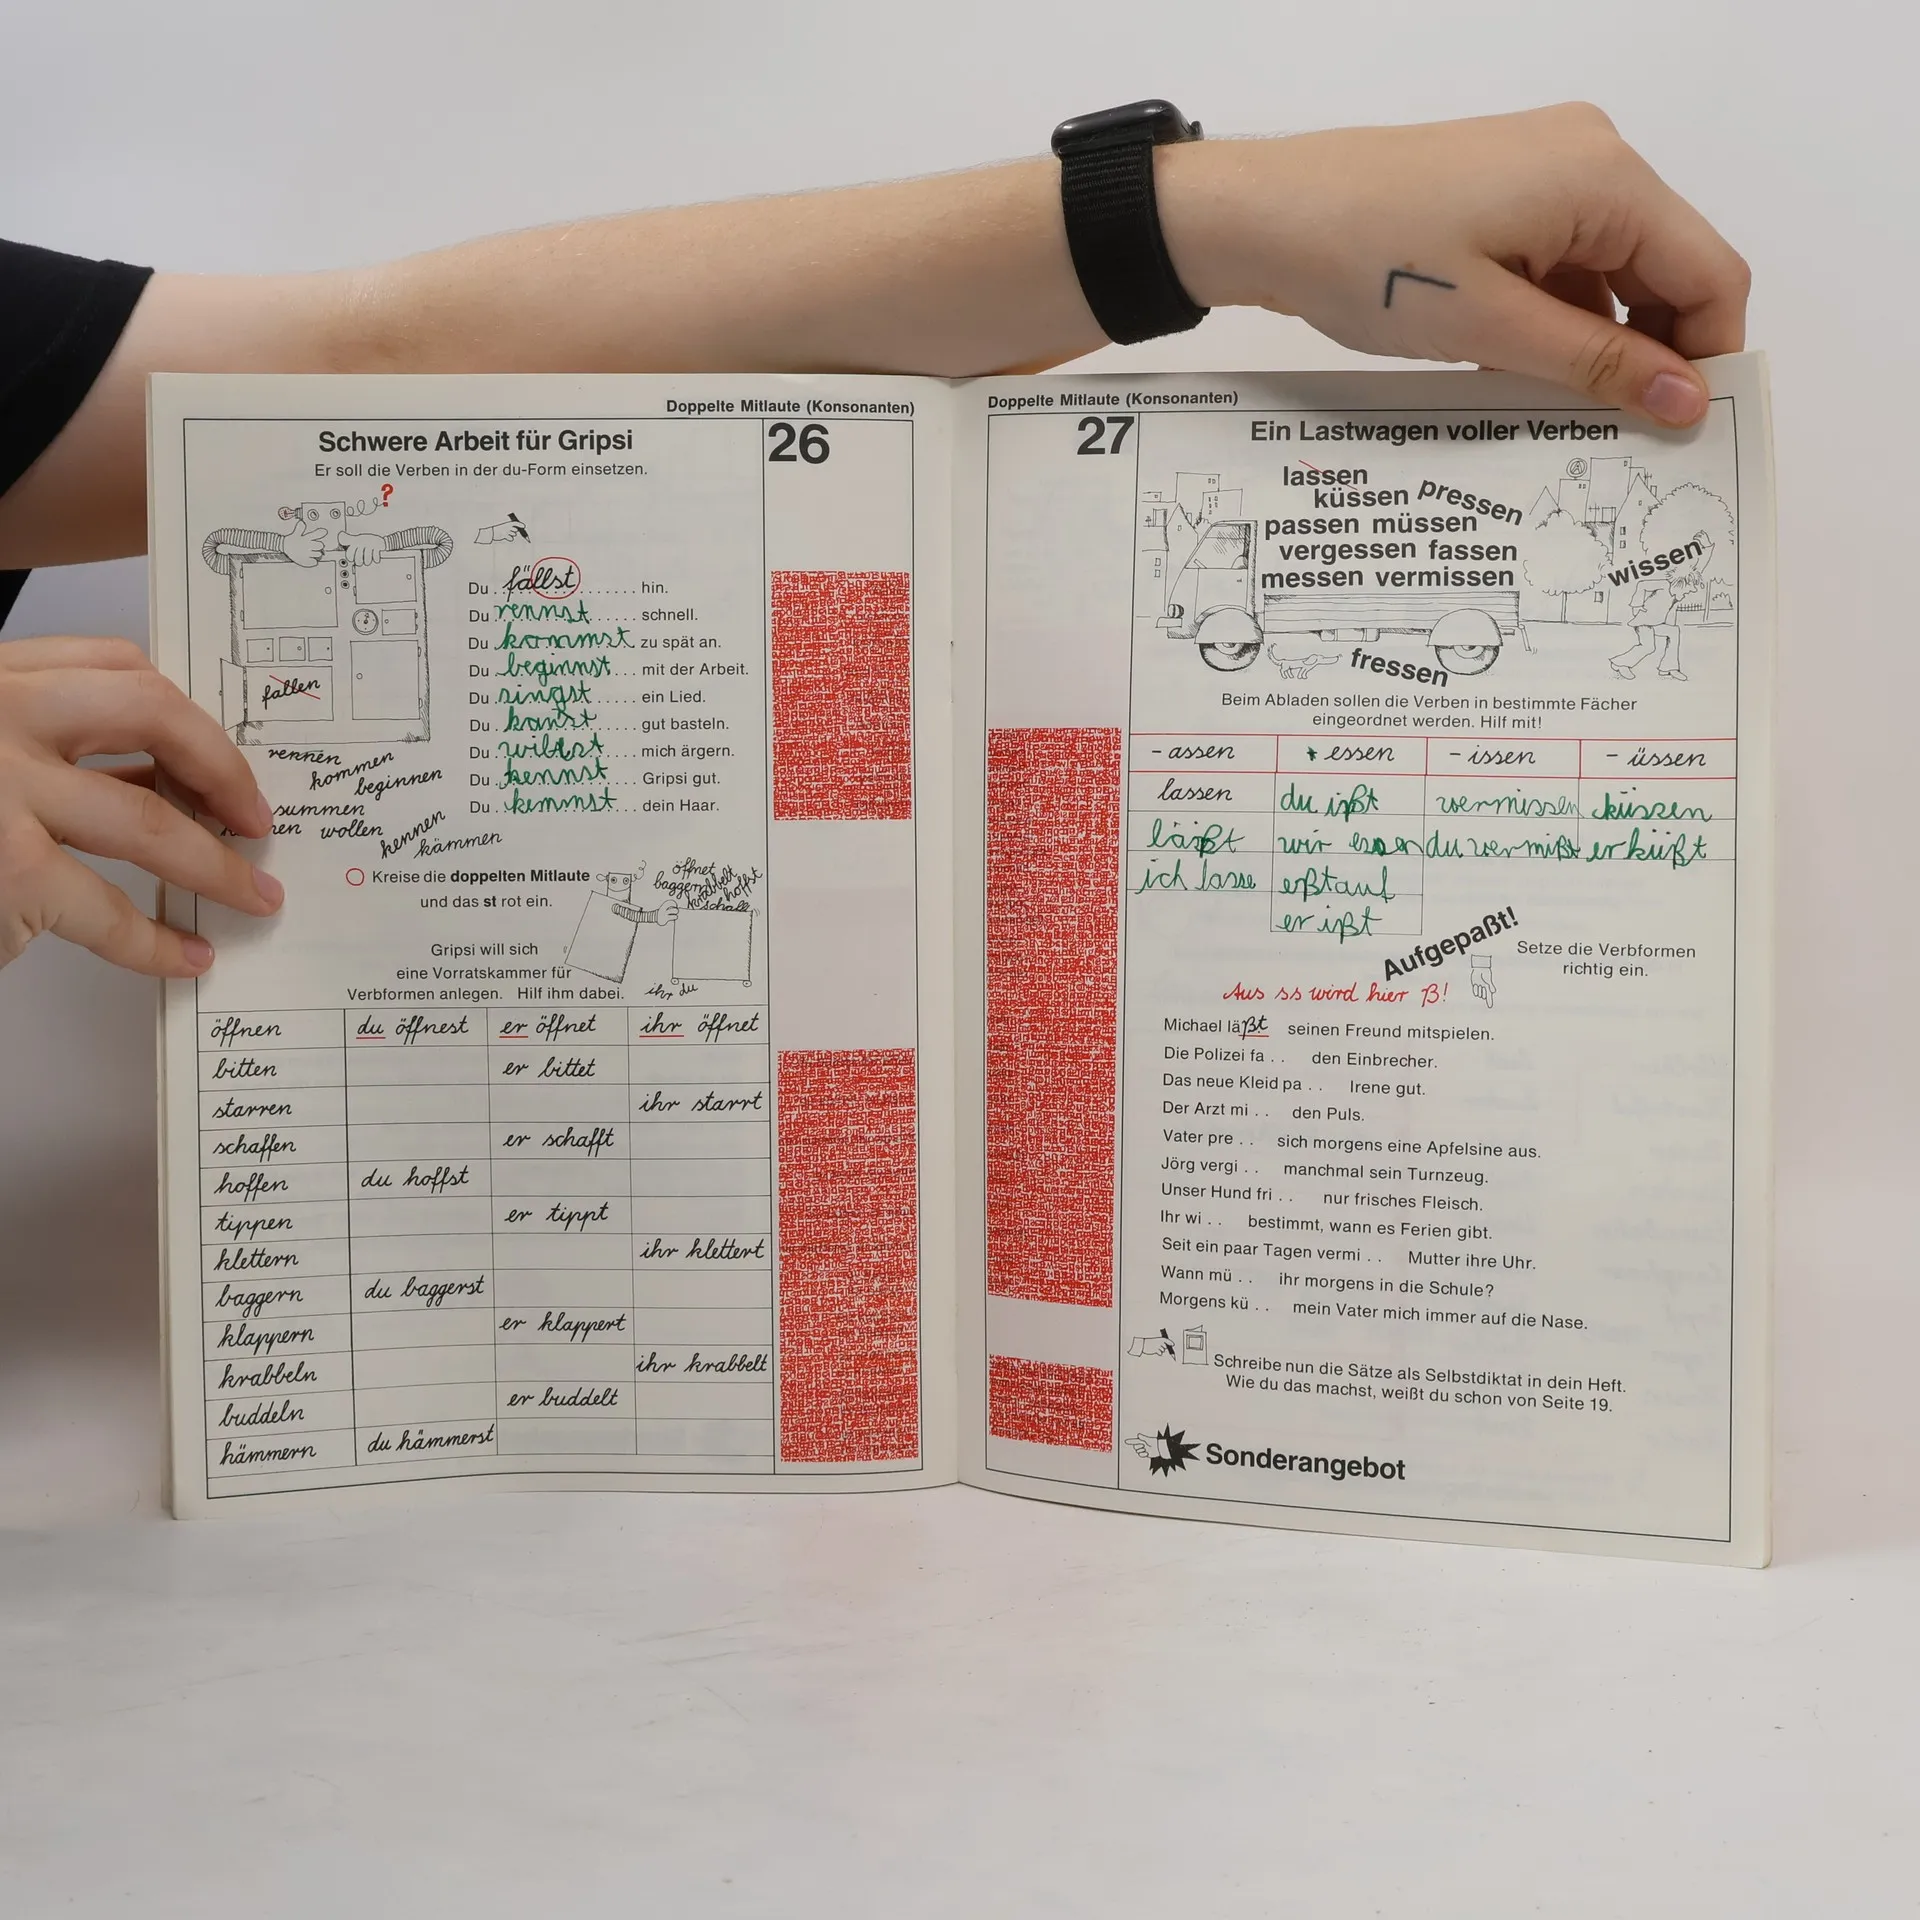 Doppelte Mitlaute (Konsonanten)
26
Schwere Arbeit für Gripsi
Er soll die Verben in der du-Form einsetzen.
?
fallen
Du fällst hin.
Du rennst schnell.
Du kommst zu spät an.
Du beginnst mit der Arbeit.
Du singst ein Lied.
Du kanst gut basteln.
Du mich ärgern.
Du kennst Gripsi gut.
Du kemmst dein Haar.
rennen
kommen
beginnen
summen
wollen
kennen
kämmen
Kreise die doppelten Mitlaute
und das st rot ein.
öffnet
krabbelt
hofft
Gripsi will sich
eine Vorratskammer für
Verbformen anlegen. Hilf ihm dabei.
ihr du
öffnen du öffnest er öffnet ihr öffnet
bitten er bittet
starren ihr starrt
schaffen er schafft
hoffen du hoffst
tippen er tippt
klettern ihr klettert
baggern du baggerst
klappern er klappert
krabbeln ihr krabbelt
buddeln er buddelt
hämmern du hämmerst
Doppelte Mitlaute (Konsonanten)
27
Ein Lastwagen voller Verben
lassen
küssen pressen
passen müssen
vergessen fassen
messen vermissen
wissen
fressen
Beim Abladen sollen die Verben in bestimmte Fächer
eingeordnet werden. Hilf mit!
- assen - essen - issen - üssen
lassen du ißt vermissen küssen
läßt wir essen du vermißt er küßt
ich lasse eßt auf
er ißt
Aufgepaßt!
Aus ss wird hier ß!
Setze die Verbformen
richtig ein.
Michael läßt seinen Freund mitspielen.
Die Polizei fa . . den Einbrecher.
Das neue Kleid pa . . Irene gut.
Der Arzt mi . . den Puls.
Vater pre . . sich morgens eine Apfelsine aus.
Jörg vergi . . manchmal sein Turnzeug.
Unser Hund fri . . nur frisches Fleisch.
Ihr wi . . bestimmt, wann es Ferien gibt.
Seit ein paar Tagen vermi . . Mutter ihre Uhr.
Wann mü . . ihr morgens in die Schule?
Morgens kü . . mein Vater mich immer auf die Nase.
Schreibe nun die Sätze als Selbstdiktat in dein Heft.
Wie du das machst, weißt du schon von Seite 19.
Sonderangebot